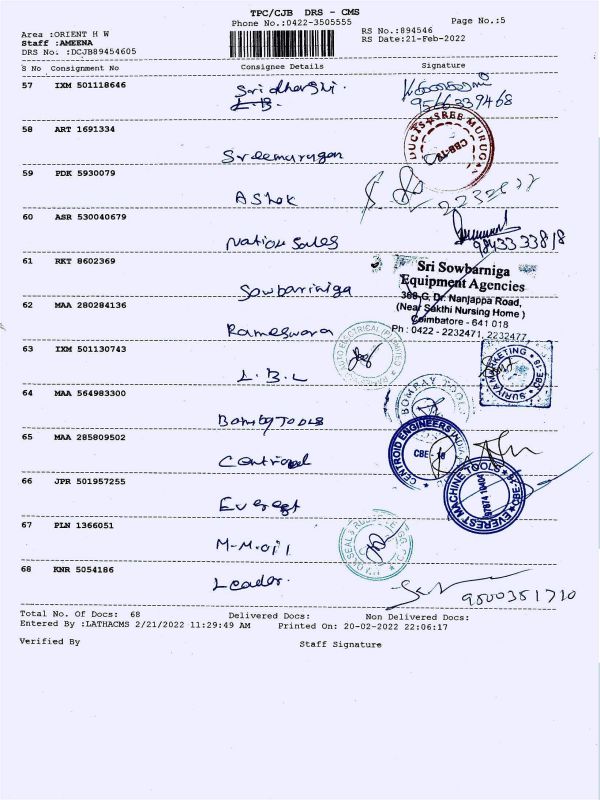 TPC/CJB DRS - CMS
Phone No.:0422-3505555
Page No.:5
Area :ORIENT H W
Staff :AMEENA
DRS No. :DCJB89454605
RS No.:894546
RS Date:21-Feb-2022
S No Consignment No Consignee Details Signature
57 IXM 501118646 Sridharshi.
L.B.
9566339468
58 ART 1691334 Sreemurugan
DUCTS ★ SREE MURUGA
CBE-18
59 PDK 5930079 AShok
60 ASR 530040679 Nation Sales
9843333818
61 RKT 8602369 Sowbarniga
Sri Sowbarniga
Equipment Agencies
368-G, Dr. Nanjappa Road,
(Near Sakthi Nursing Home )
Coimbatore - 641 018
Ph : 0422 - 2232471, 2232477,
62 MAA 280284136 Rameswara
ELECTRICAL (P) LIMITED
63 IXM 501130743 L.B.L
SURIYA MARKETING ★ CBE-18
64 MAA 564983300 Bombay Tools
BOMBAY TOOLS
65 MAA 285809502 Centroid
CENTROID ENGINEERS
CBE - 18
66 JPR 501957255 Everest
EVEREST MACHINE TOOLS ★ CBE-18
67 PLN 1366051 M-M.oil
68 KNR 5054186 Leader.
9500351710
Total No. Of Docs: 68 Delivered Docs: Non Delivered Docs:
Entered By :LATHACMS 2/21/2022 11:29:49 AM Printed On: 20-02-2022 22:06:17
Verified By Staff Signature